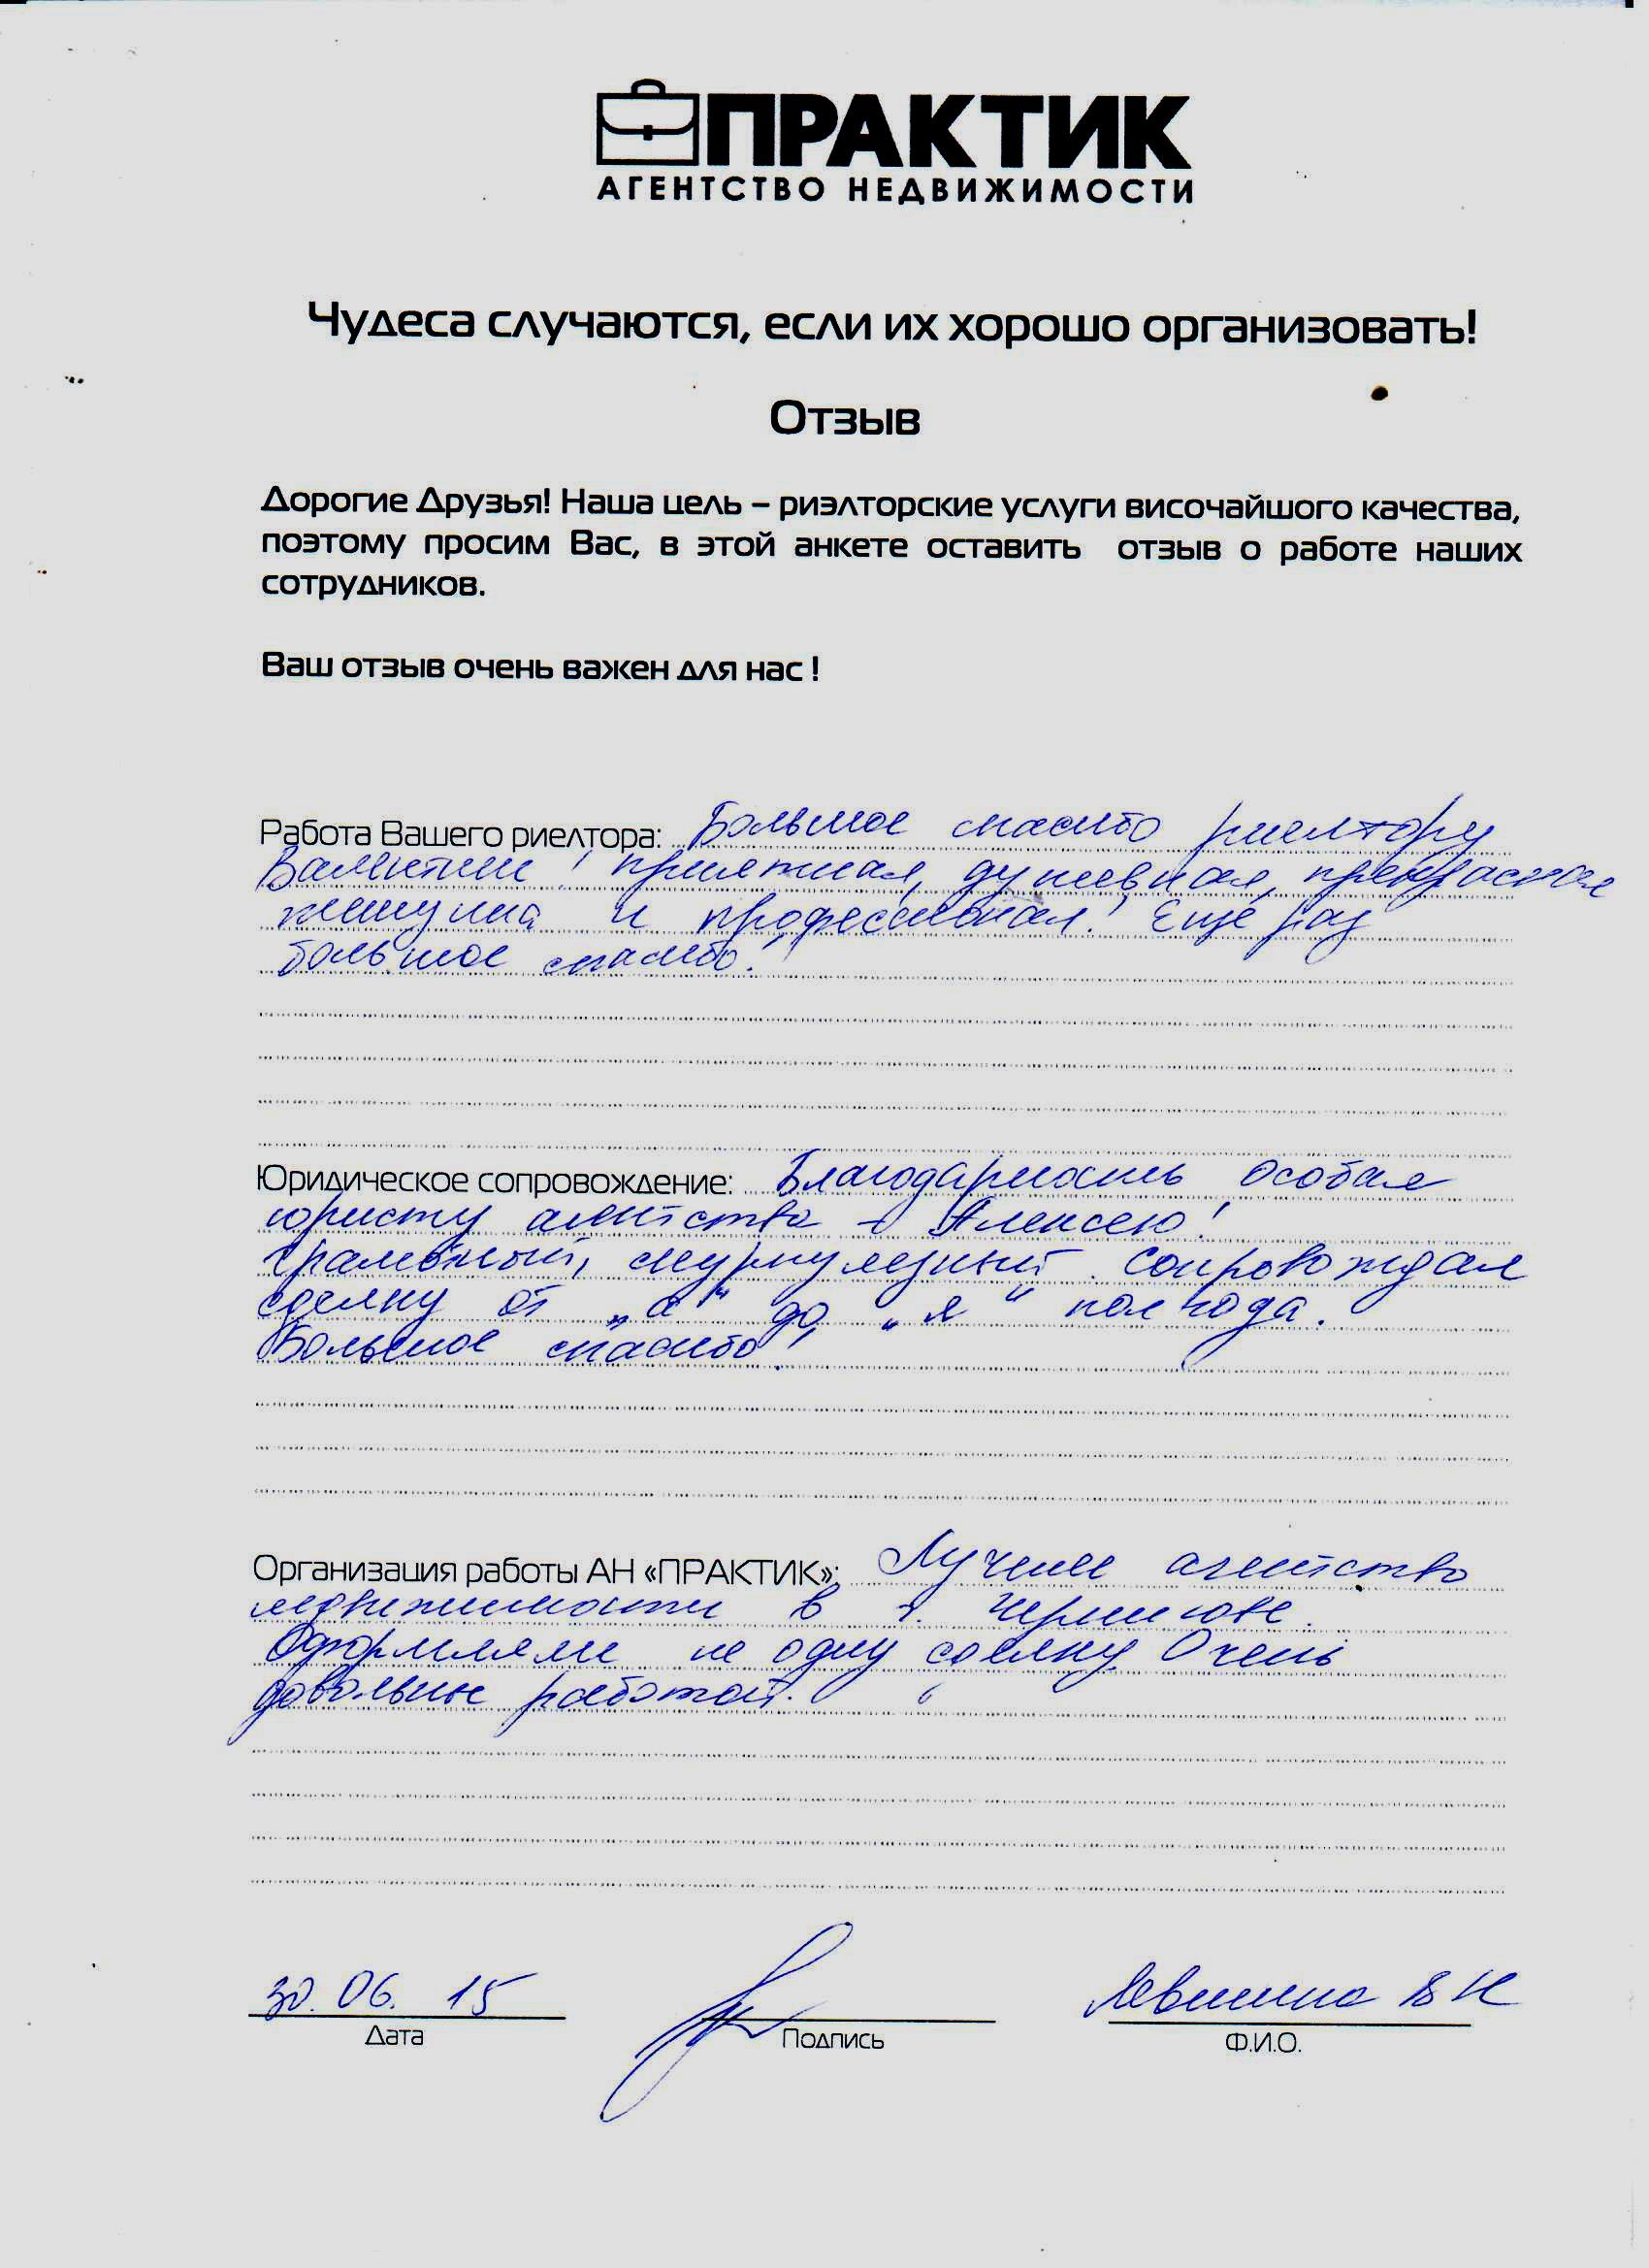 ПРАКТИК
АГЕНТСТВО НЕДВИЖИМОСТИ
Чудеса случаются, если их хорошо организовать!
Отзыв
Дорогие Друзья! Наша цель – риэлторские услуги височайшого качества,
поэтому просим Вас, в этой анкете оставить отзыв о работе наших
сотрудников.
Ваш отзыв очень важен для нас !
Работа Вашего риелтора: Большое спасибо риелтору
Валентине! приятная, душевная, прекрасная
женщина и профессионал! Ещё раз
большое спасибо!
Юридическое сопровождение: Благодарность особая
юристу агентства - Алексею!
Грамотный, сопровождал
сделку от „а" до „я" полгода.
Большое спасибо!
Организация работы АН «ПРАКТИК»: Лучшее агентство
недвижимости в г. Чернигове.
Оформляли не одну сделку. Очень
довольные работой.
30. 06. 15
Дата
Подпись
Левшина В Н
Ф.И.О.